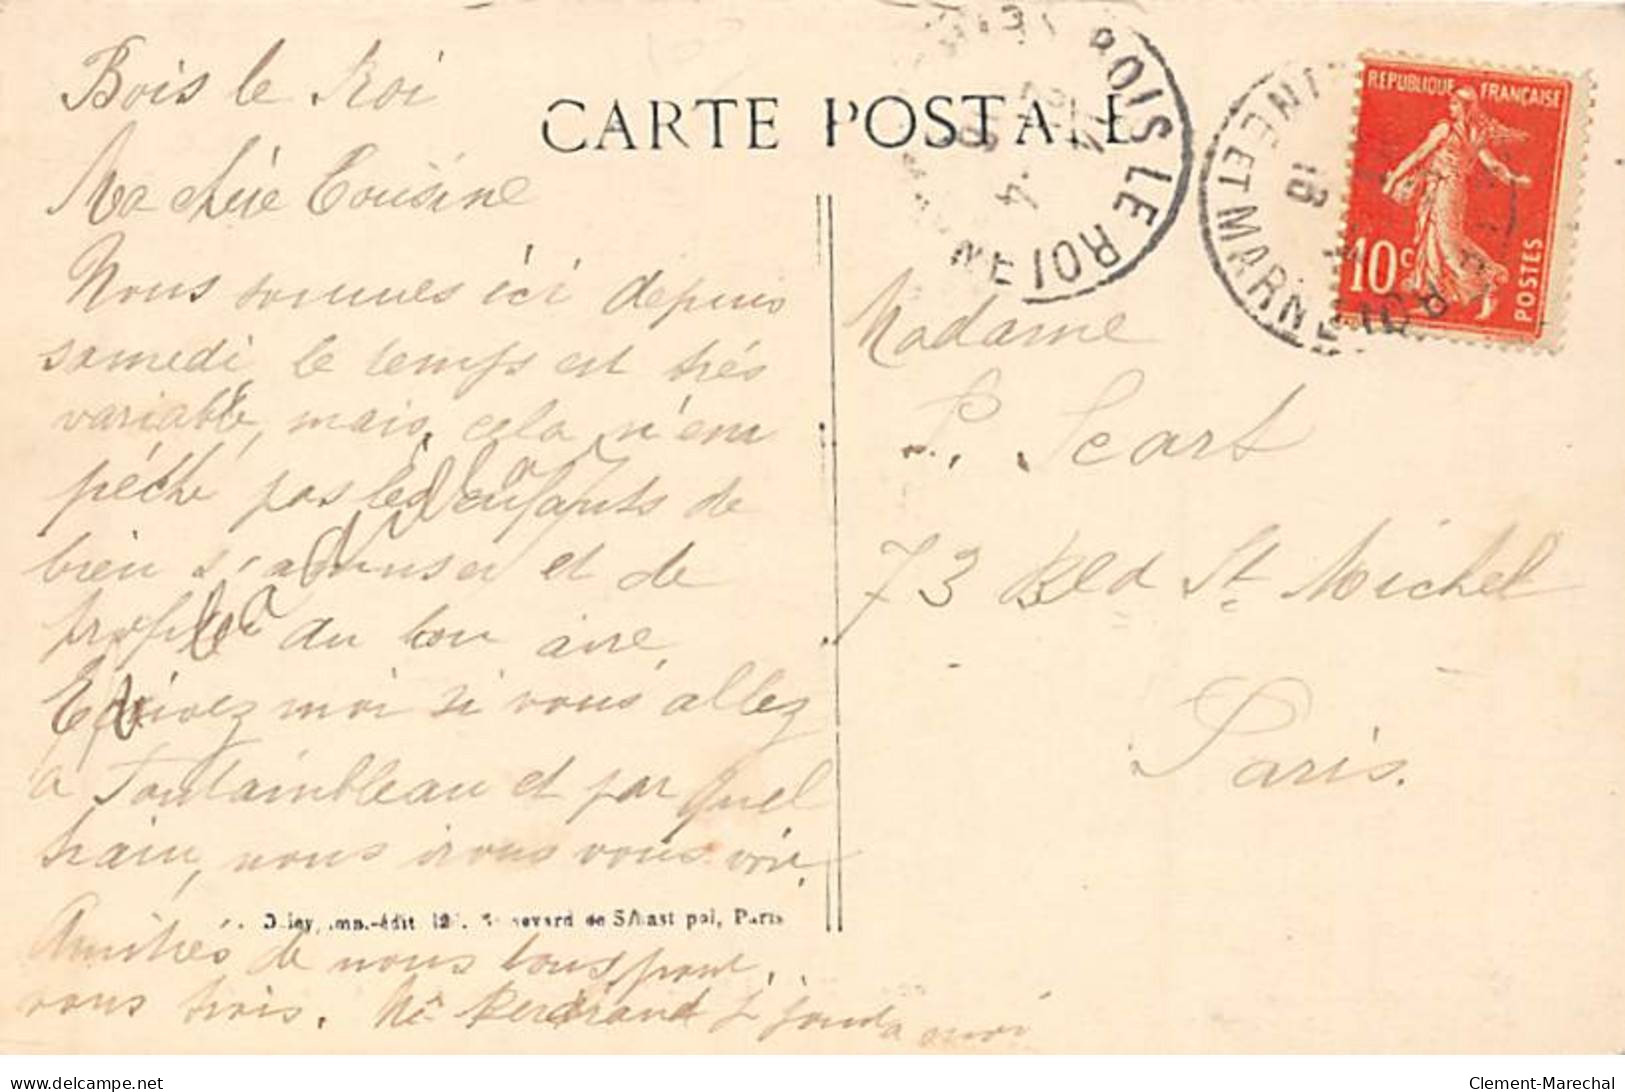 Bois le Roi
Ma chère Cousine
Nous sommes ici depuis
samedi le temps est très
variable, mais cela n'em
pêche pas les enfants de
bien s'amuser et de
profiter du bon aire.
Ecrivez moi si vous allez
a Fontainbleau et par quel
train, nous irons vous voir.
Amitiés de nous tous pour
vous trois.
CARTE POSTALE
imp.-édit Paris
BOIS LE ROI
NE
BOIS LE ROI
NE ET MARNE
16
REPUBLIQUE FRANÇAISE
10c
POSTES
Madame
P. Scart
73 Bld St Michel
Paris.
delcampe.net
Clement-Marechal